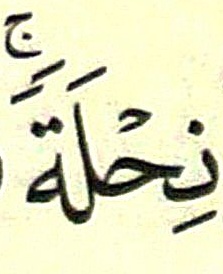 نِحْلَةًۚ